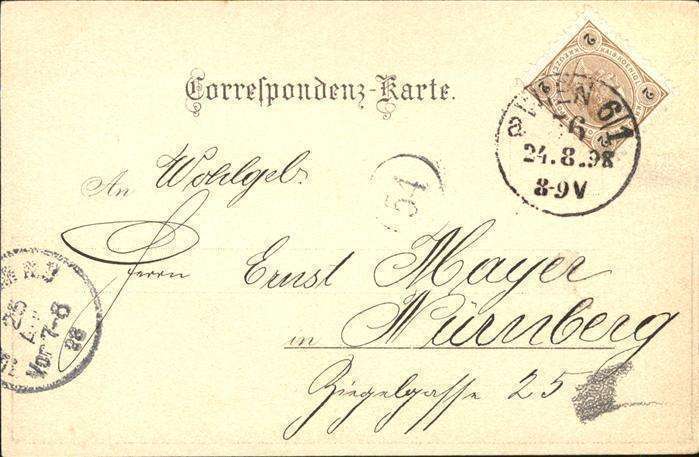 Correspondenz-Karte.
2
2
2
WIEN 6/1
a
76
24.8.98
8-9V
An Wohlgeb.
54
Herrn Ernst Mayer
in Nürnberg
Ziegelgasse 25
25
Vor 7-8
98